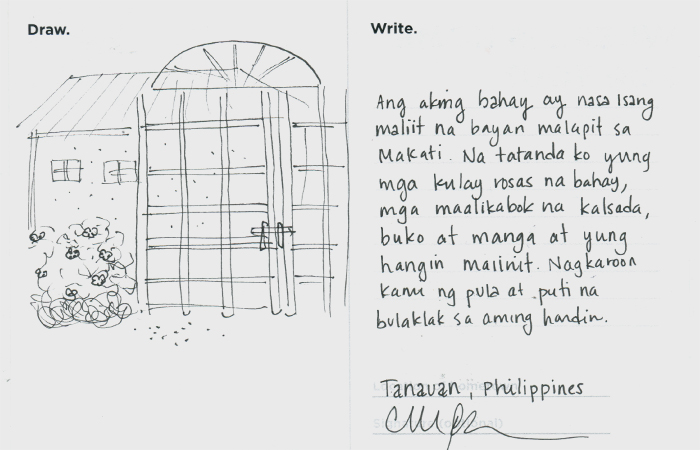 Draw.
Write.
Ang aking bahay ay nasa isang
maliit na bayan malapit sa
Makati. Na tatanda ko yung
mga kulay rosas na bahay,
mga maalikabok na kalsada,
buko at manga at yung
hangin maiinit. Nagkaroon
kami ng pula at puti na
bulaklak sa aming hardin.
Tanauan, Philippines